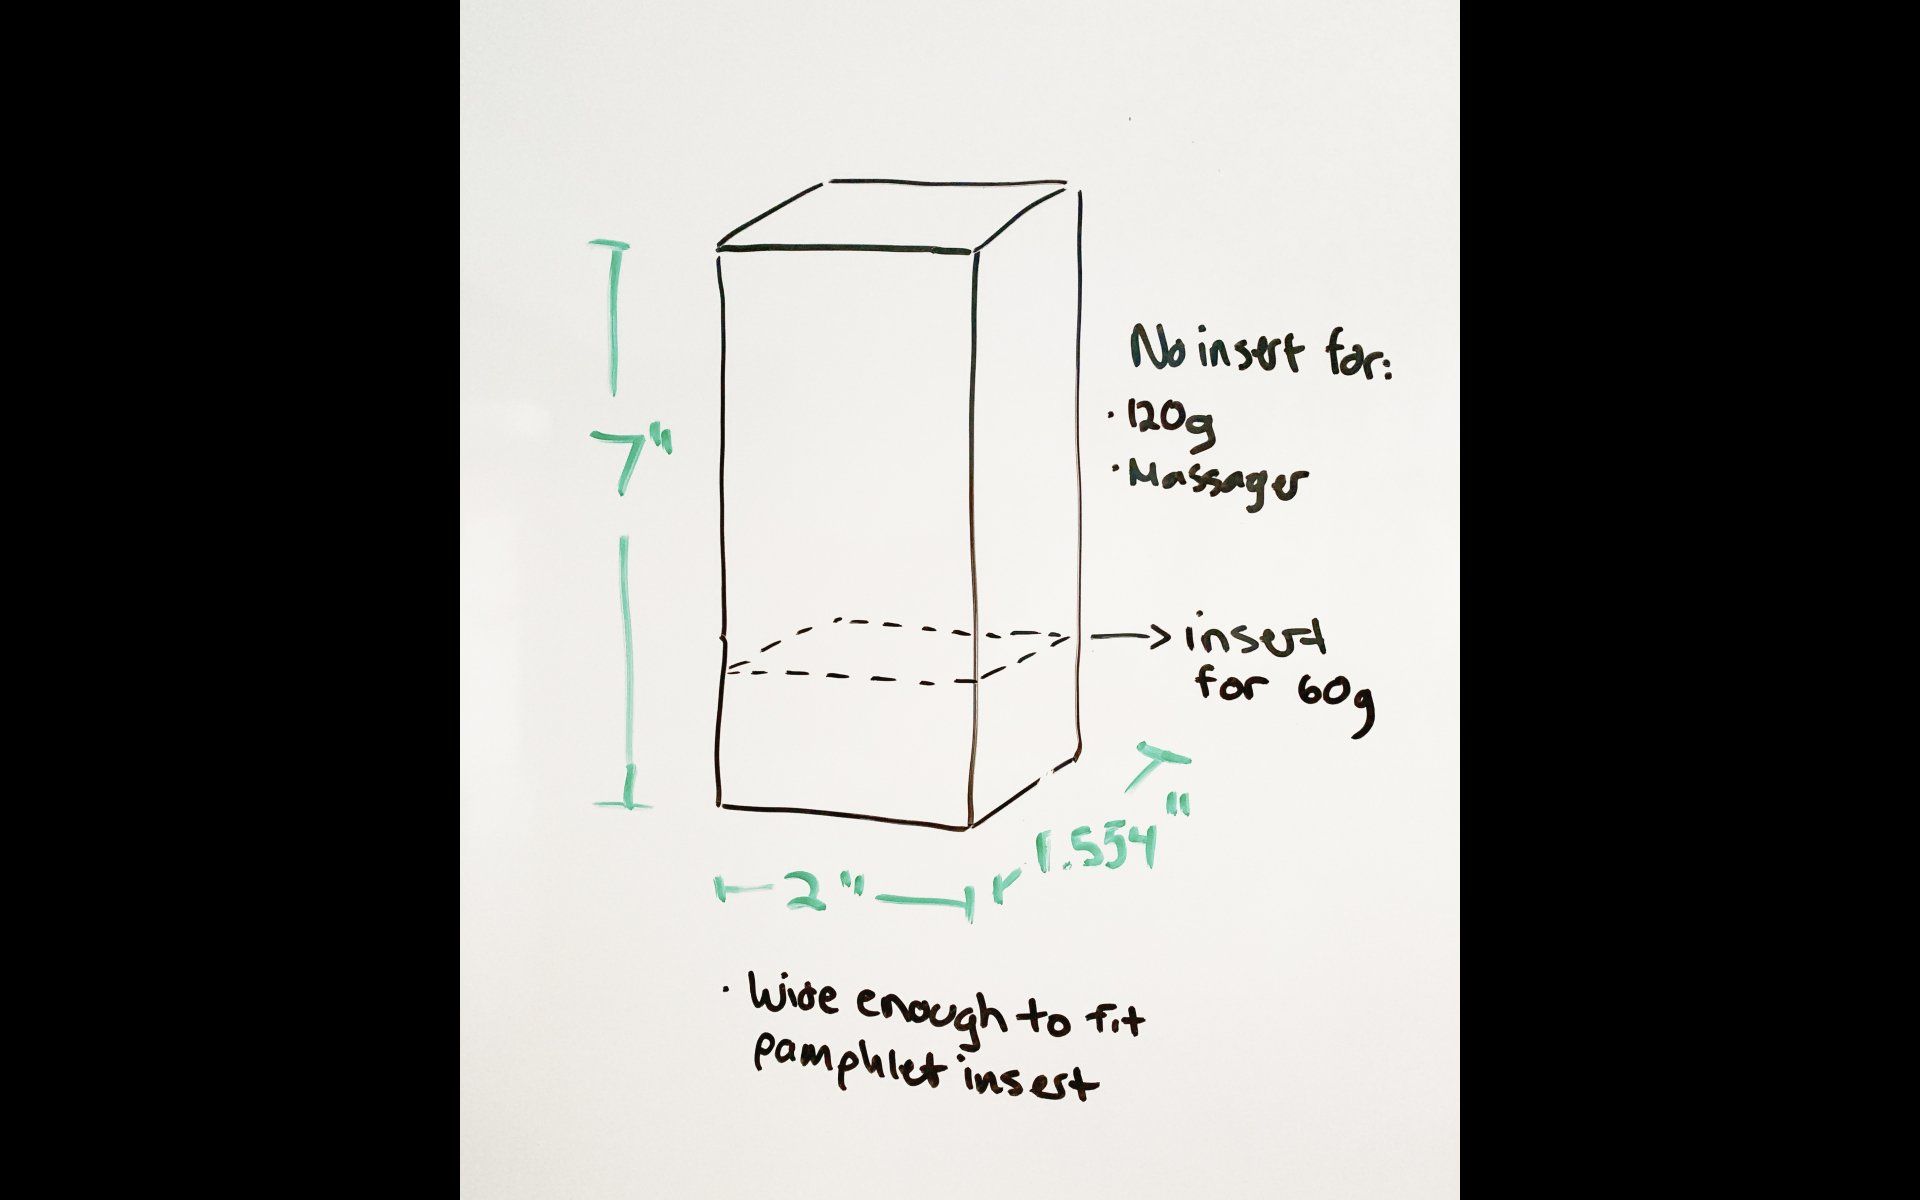 7"
No insert for:
· 120g
· Massager
→ insert
for 60g
1.554"
2"
· Wide enough to fit
pamphlet insert